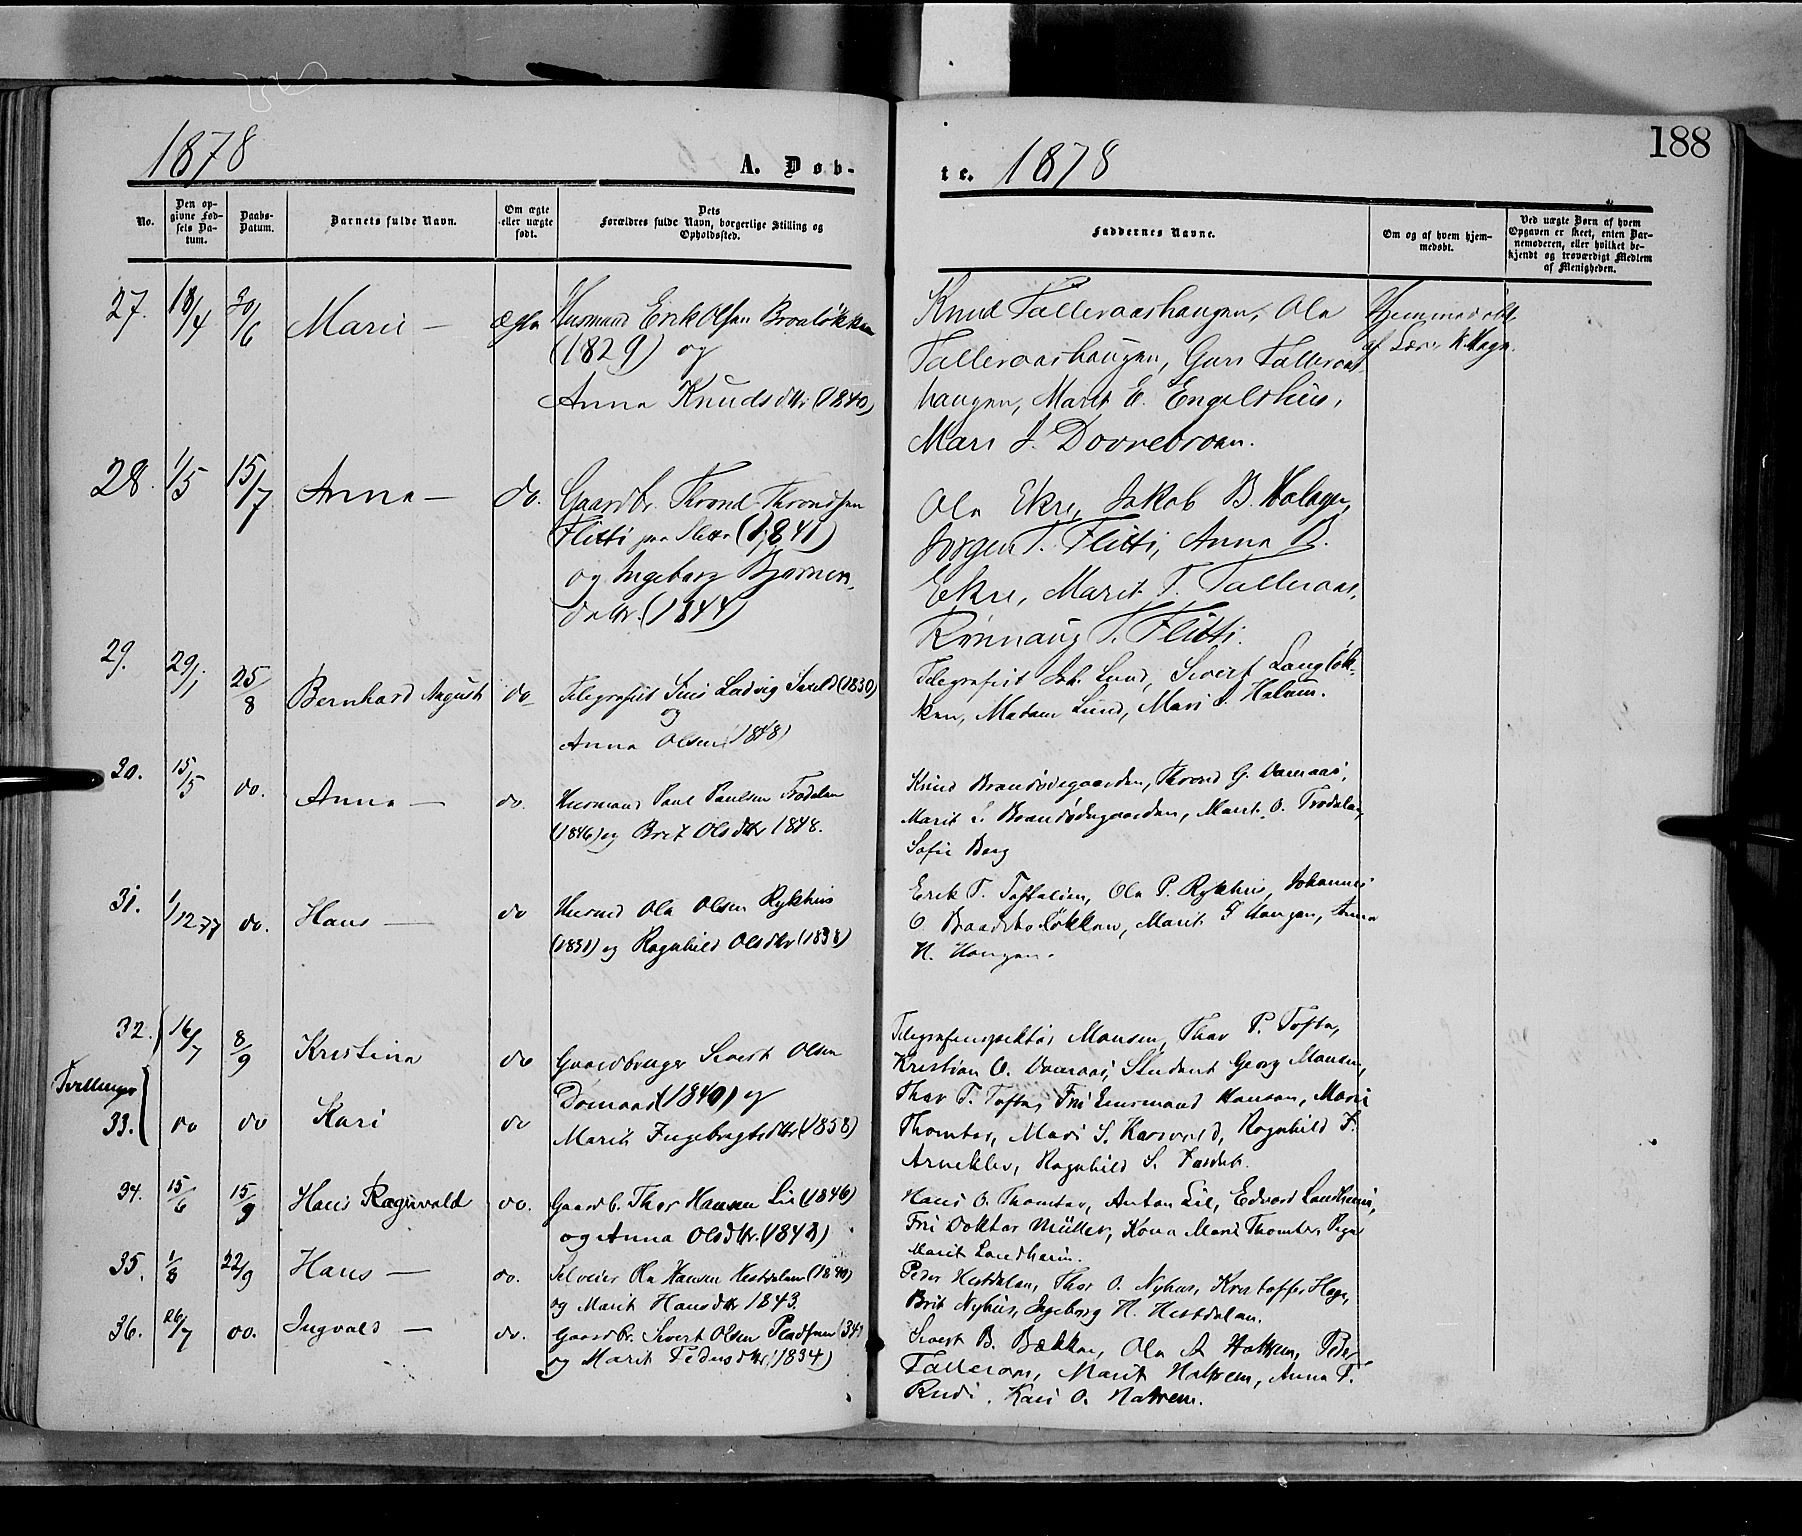 188
1878
A. Døb-
te. 1878
No.
Den op-
givne Fød-
sels Da-
tum.
Daabs-
Datum.
Barnets fulde Navn.
Om ægte
eller uægte
født.
Dets
Forældres fulde Navn, borgerlige Stilling og
Opholdssted.
Faddernes Navne.
Om og af hvem hjem-
medøbt.
Ved uægte Børn af hvem
Opgaven er skeet, enten Bar-
nemoderen, eller hvilket be-
kjendt og troværdigt Medlem
af Menigheden.
27. 18/4 30/6 Marie — ægte Husmand Erik Olsen Broløkken
(1829) og
Anna Knudsdtr (1840)
Knud Talleraashaugen, Ola
Talleraashaugen, Guri Talleraas-
haugen, Marit E. Engelshus,
Mari J. Dovrebroen.
Hjemmedøbt
af Lærer K. Hage.
28. 1/5 15/7 Anna — do. Gaardbr. Thrond Throndsen
Flitti (1841)
og Ingeborg Bjørners-
datter. (1844)
Ola Ekre, Jakob B. Halagen,
Jørgen T. Flitti, Anna B.
Ekre, Marit T. Talleraas,
Rønnaug T. Flitti.
29. 29/1 25/8 Bernhard August do Telegrafist Ludvig (1830)
og
Anna Olsen (1848)
Telegrafist Joh. Lund, Sivert Langløk-
ken, Madam Lund, Mari J. Halum.
30. 15/5 do. Anna — do. Husmand Paul Paulsen Trodalen
(1846) og Brit Olsdtr 1848.
Knud Brandødegaarden, Thrond G. Dovraas,
Marit S. Brandødegaarden, Marit O. Trodalen,
Sofie Berg
31. 1/12-77 do. Hans — do Husmd Ola Olsen Rykhus
(1831) og Ragnhild Olsdtr (1838)
Erik T. Toftelien, Ola P. Rykhus, Johannes
O. Baadstoløkken, Marit T Haugen, Anna
H. Haugen.
32. 16/7 8/9 Kristina do Gaardbruger Sivert Olsen
Domaas (1840) og
Tvillinger
33. do do Kari do Marit Ingebrigtsdtr (1858)
Telegrafinspektør Monsen, Thor P. Tofte,
Kristian O. Domaas, Student Georg Monsen,
Thor T. Tofte, Fru Lensmand Hansen, Mari
Thomter, Mari S. Korsvold, Ragnhild T.
Arneklev, Ragnhild S.
34. 15/6 15/9 Hans Ragnvald do. Gaardb. Thor Hansen Lie (1846)
og Anna Olsdtr. (1848)
Hans O. Thomter, Anton Lie, Edvard Landheim,
Fru Doktor Müller, Kona Mari Thomter, Pige
Marit Landheim.
35. 1/8 22/9 Hans — do. Selveier Ola Hansen Hestdalen (1840)
og Marit Hansdtr 1843.
Peder Hestdalen, Thor O. Nyhus, Kristoffer Hage,
Brit Nyhus, Ingeborg H. Hestdalen.
36. 26/7 do. Ingvald — do. Gaardbr. Sivert Olsen (34)
og Marit Pedersdtr (1834)
Sivert B. Bækken, Ola A Hattrem, Peder
Talleraas, Marit Hattrem, Anna T.
Rudi, Kari O. Hattrem.